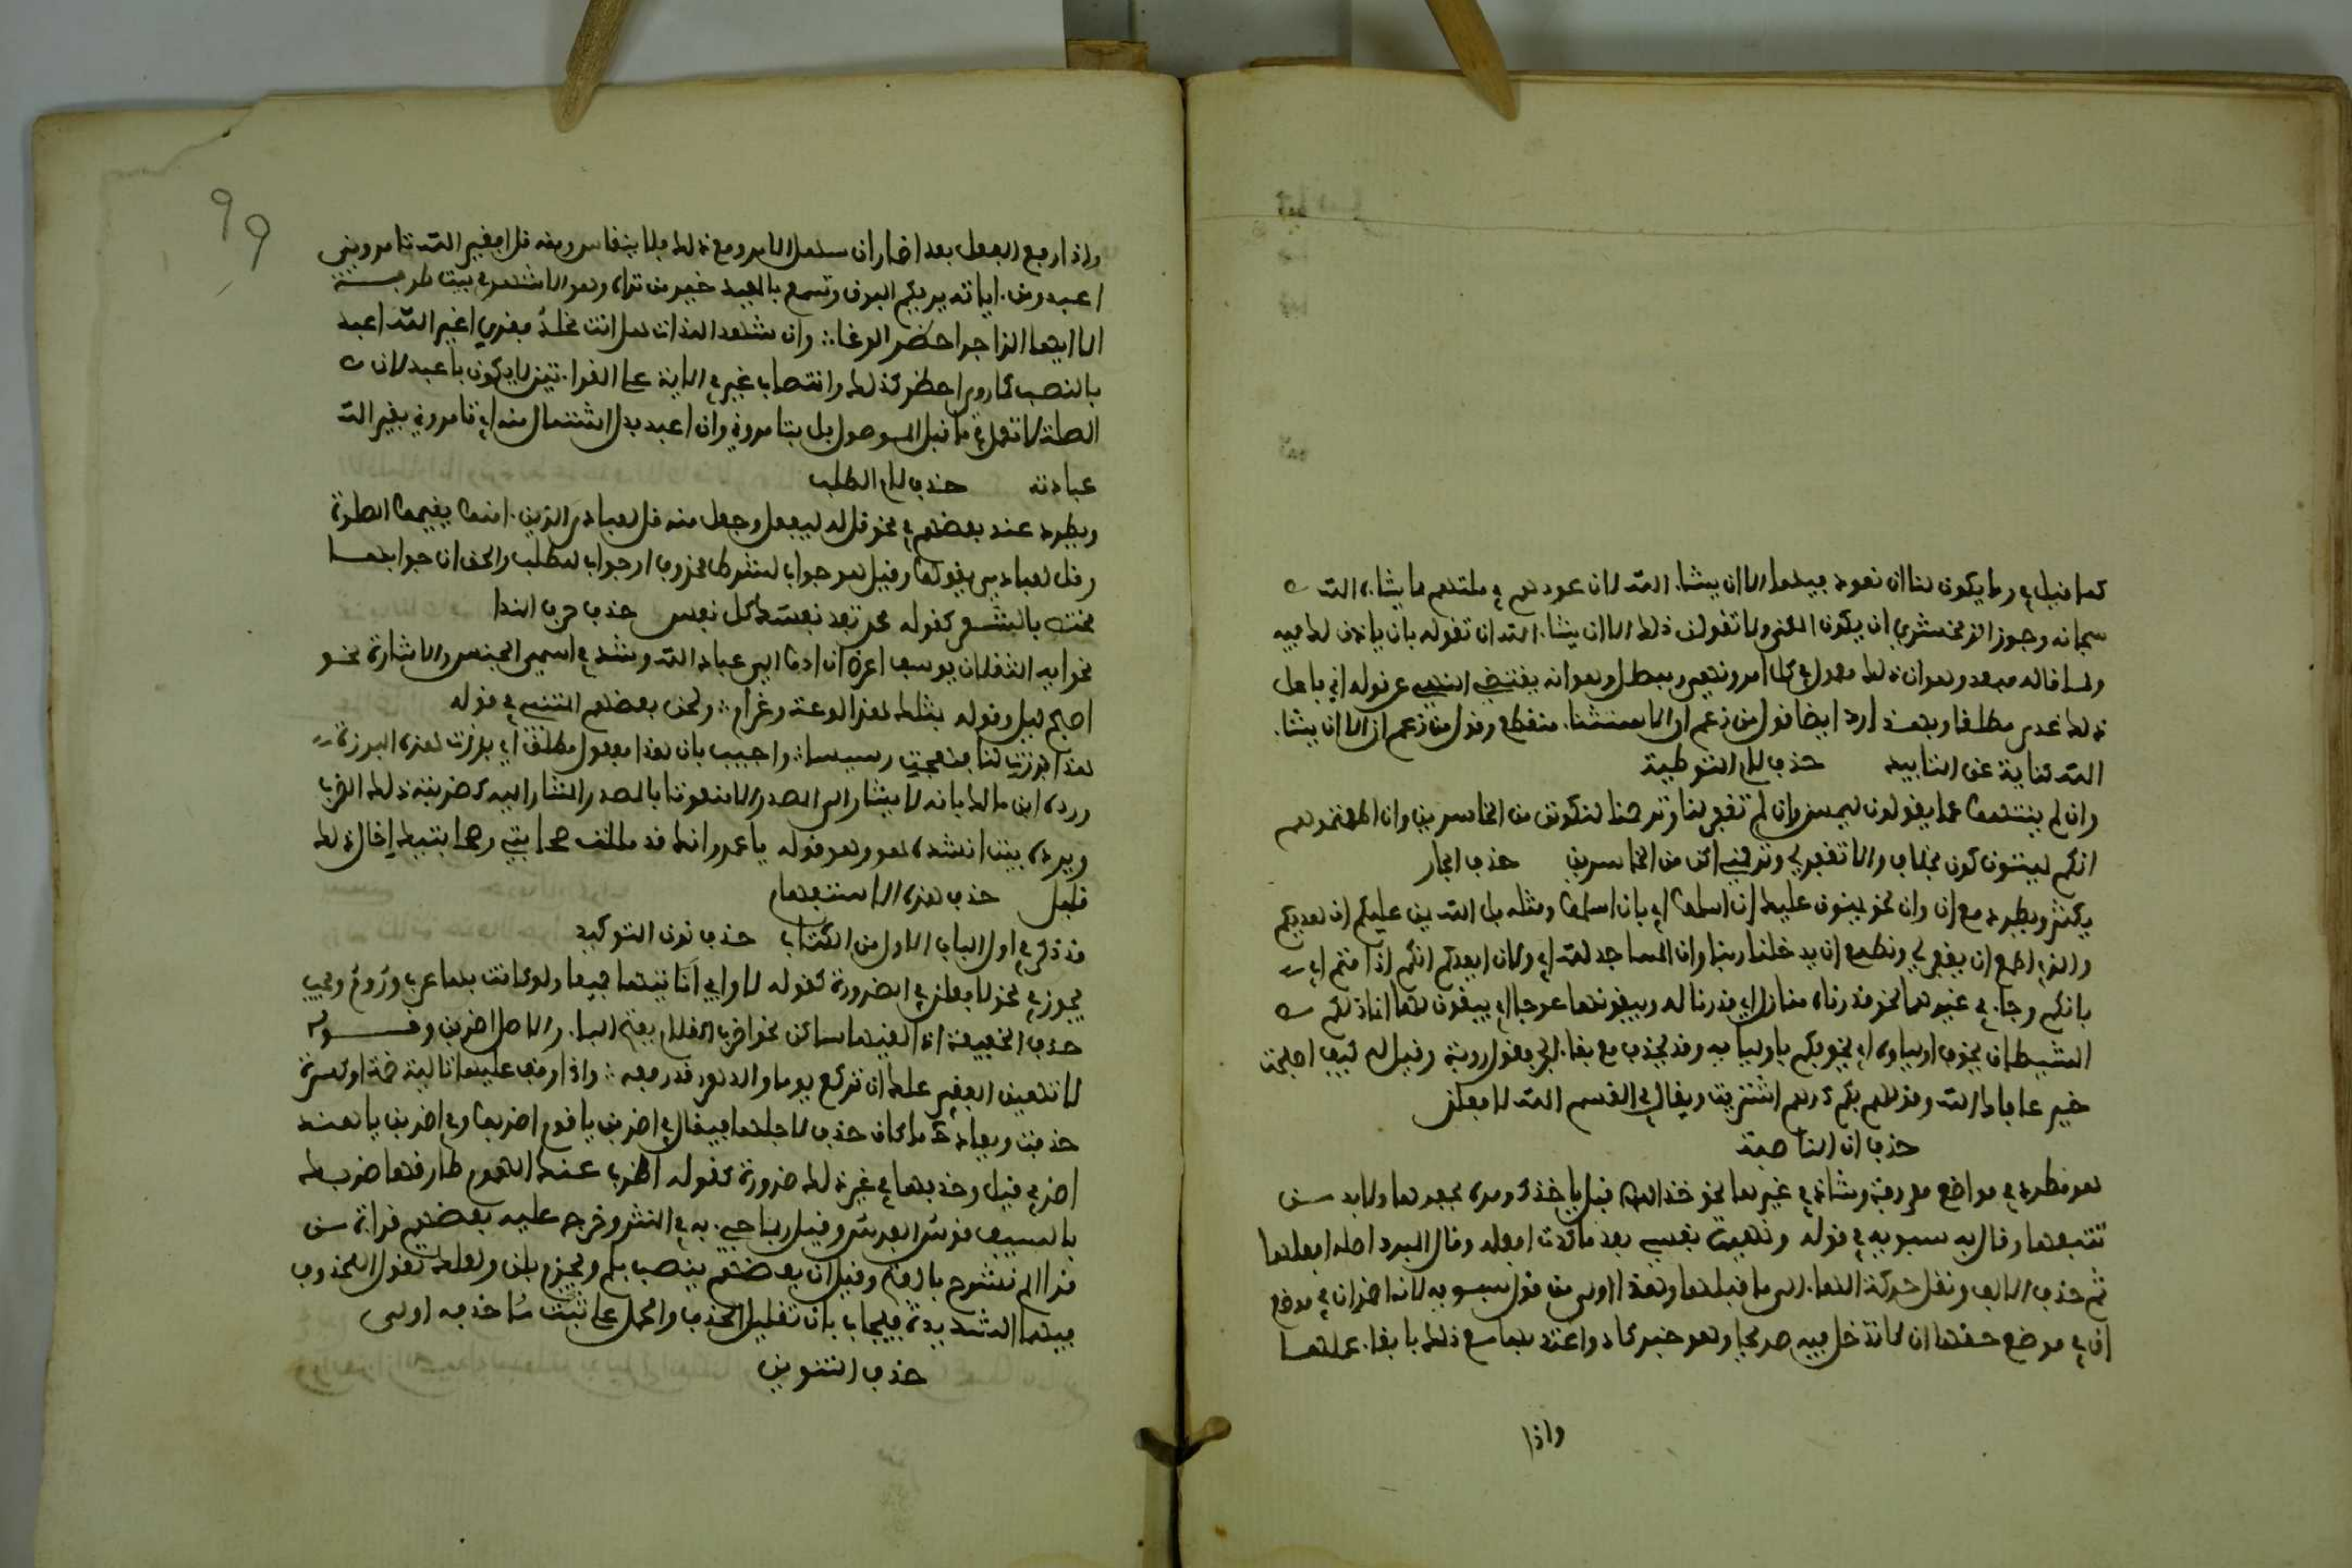 كما قيل في وما يكون لنا ان نعود فيها الا ان يشاء الله لان عودهم في ملتهم ما يشاءه الله
سبحانه وجوز الزمخشري ان يكون المعنى ولا تقولن ذلك الا ان يشاء الله ان تقوله بان ياذن لك فيه
ولما قاله مبعد وهو ان ذلك معلوم في كل امر ونهي ومبطل وهو انه يقتضي النهي عن قوله اني فاعل
ذلك غدى مطلقا وبهذا يرد ايضا قول من زعم ان الاستثناء منقطع وقول من زعم ان الا ان يشاء
الله كناية عن التابيد حذف لام التوطية
وان لم ينتهوا عما يقولون ليمسن وان لم تغفر لنا وترحمنا لنكونن من الخاسرين وان اطعتموهم
انكم لمشركون بخلاف والا تغفر لي وترحمني اكن من الخاسرين حذف الجار
يكثر ويطرد مع ان وان نحو يمنون عليك ان اسلموا اي بان اسلموا ومثله بل الله يمن عليكم ان هديكم
والذي اطمع ان يغفر لي ونطمع ان يدخلنا ربنا وان المساجد لله اي ولان ايعدكم انكم اذا متم اي
بانكم وجاء في غيرهما نحو قدرناه منازل اي قدرنا له ويبغونها عوجا اي يبغون لها انما ذلكم
الشيطان يخوف اولياءه اي يخوفكم باوليائه وقد يحذف مع بقاء الجر كقول رؤبة وقيل له كيف اصبحت
خير عافاك الله وقولهم بكم درهم اشتريت ويقال في القسم الله لافعلن
حذف ان الناصبة
هو مطرد في مواضع معروفة وشاذ في غيرها نحو خذ اللص قبل ياخذك ومره يحفرها ولا بد من
تتبعها وقال به سيبويه في قوله ونهنهت نفسي بعد ما كدت افعله وقال المبرد اصله افعلها
ثم حذف الالف ونقل حركة الهاء الى ما قبلها وهذا اولى من قول سيبويه لانه اضمر ان في موضع
ان في موضع حقها ان لا تدخل فيه صريحا وهو خبر كاد واعتد بها مع ذلك بابقاء عملها
واذا
99
واذا رفع الفعل بعد اضمار ان سهل الامر ومع ذلك فلا ينقاس ومنه قل افغير الله تامروني
اعبد ومن اياته يريكم البرق وتسمع بالمعيدي خير من تراه وهو الاشهر في بيت طرفة
الا ايهذا الزاجر احضر الوغا وان شهد اللذات هل انت مخلد وقرئ اغير الله اعبد
بالنصب كما روي احضر كذلك وانتصاب غير في الاية على القراءتين لا يكون باعبد لان
الصلة لا تعمل في ما قبل الموصول بل بتامروني وان اعبد بدل اشتمال منه اي تامروني بغير الله
عبادته حذف لام الطلب
ويطرد عند بعضهم في نحو قل له ليفعل وجعل منه قل لعبادي الذين امنوا يقيموا الصلوة
وقل لعبادي يقولوا وقيل هو جواب لشرط محذوف او جواب للطلب والحق ان حذفها
مختص بالشعر كقوله محمد تفد نفسك كل نفس حذف حرف الندا
نحو ايه الثقلان يوسف اعرض ان ادوا الي عباد الله وشذ في اسمي الجنس والاشارة نحو
اصبح ليل وقوله بمثلك هذا لوعة وغرام ولحن بعضهم المتنبي في قوله
هذي برزت لنا فهجت رسيسا واجيب بان هذي مفعول مطلق اي برزت هذه البرزة
ورده ابن مالك بانه لا يشار الى المصدر الا منعوتا بالمصدر المشار اليه كضربته ذلك الضرب
ويرده بيت انشده هو وهو قوله يا عمرو انك قد مللت صحابتي وصحابتيك اخال ذاك
قليل حذف همزة الاستفهام
قد ذكر في اول الباب الاول من الكتاب حذف نون التوكيد
يجوز في نحو لافعلن في الضرورة كقوله فلا وابي لناتيها جميعا ولو كانت بها عرب وروم ويجب
حذف الخفيفة اذا لقيها ساكن نحو اضرب الغلام بفتح الباء والاصل اضربن وقوله
لا تهين الفقير علك ان تركع يوما والدهر قد رفعه واذا وقف عليها تالية ضمة او كسرة
حذفت ويعاد حينئذ ما كان حذف لاجلها فيقال في اضربن يا قوم اضربوا وفي اضربن يا هند
اضربي قيل وحذفها في غير ذلك ضرورة كقوله اضرب عنك الهموم طارقها ضربك
بالسيف قونس الفرس وقيل ربما جاء في النثر وخرج عليه بعضهم قراءة من
قرا الم نشرح بالفتح وقيل ان بعضهم ينصب بلم ويجزم بلن ولعل المحذوف
فيها الشديدة فيجاب بان تقليل الحذف والحمل على ما ثبت حذفه اولى
حذف التنوين